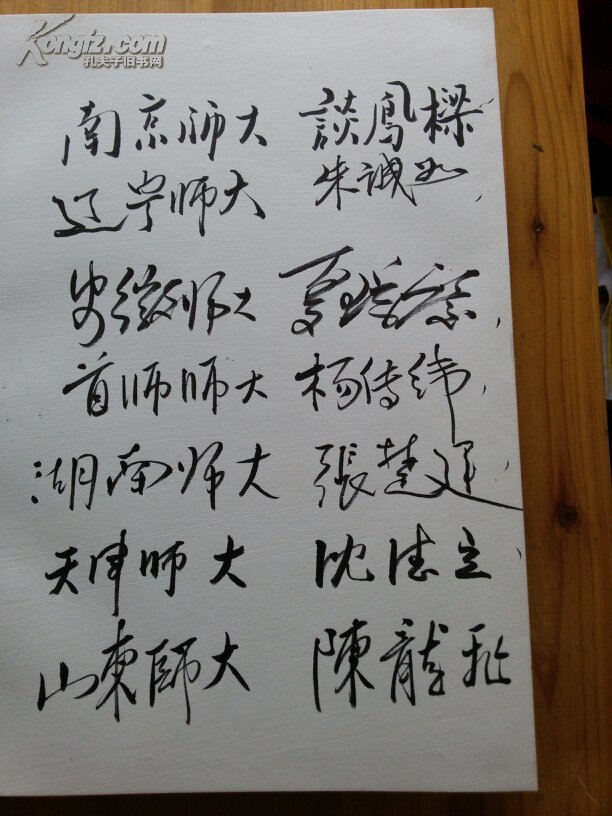 Kongfz.com
孔夫子旧书网
南京师大 談鳳樑
辽宁师大 朱诚如
安徽师大 夏瑞庆
首师师大 杨传纬
湖南师大 張楚廷
天津师大 沈德立
山東師大 陳龍飛